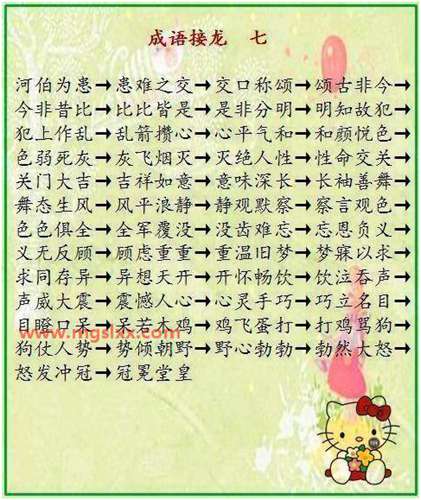 成语接龙 七
河伯为患→患难之交→交口称颂→颂古非今→
今非昔比→比比皆是→是非分明→明知故犯→
犯上作乱→乱箭攒心→心平气和→和颜悦色→
色弱死灰→灰飞烟灭→灭绝人性→性命交关→
关门大吉→吉祥如意→意味深长→长袖善舞→
舞态生风→风平浪静→静观默察→察言观色→
色色俱全→全军覆没→没齿难忘→忘恩负义→
义无反顾→顾虑重重→重温旧梦→梦寐以求→
求同存异→异想天开→开怀畅饮→饮泣吞声→
声威大震→震憾人心→心灵手巧→巧立名目→
目瞪口呆→呆若木鸡→鸡飞蛋打→打鸡骂狗→
www.mgslxx.com
狗仗人势→势倾朝野→野心勃勃→勃然大怒→
怒发冲冠→冠冕堂皇